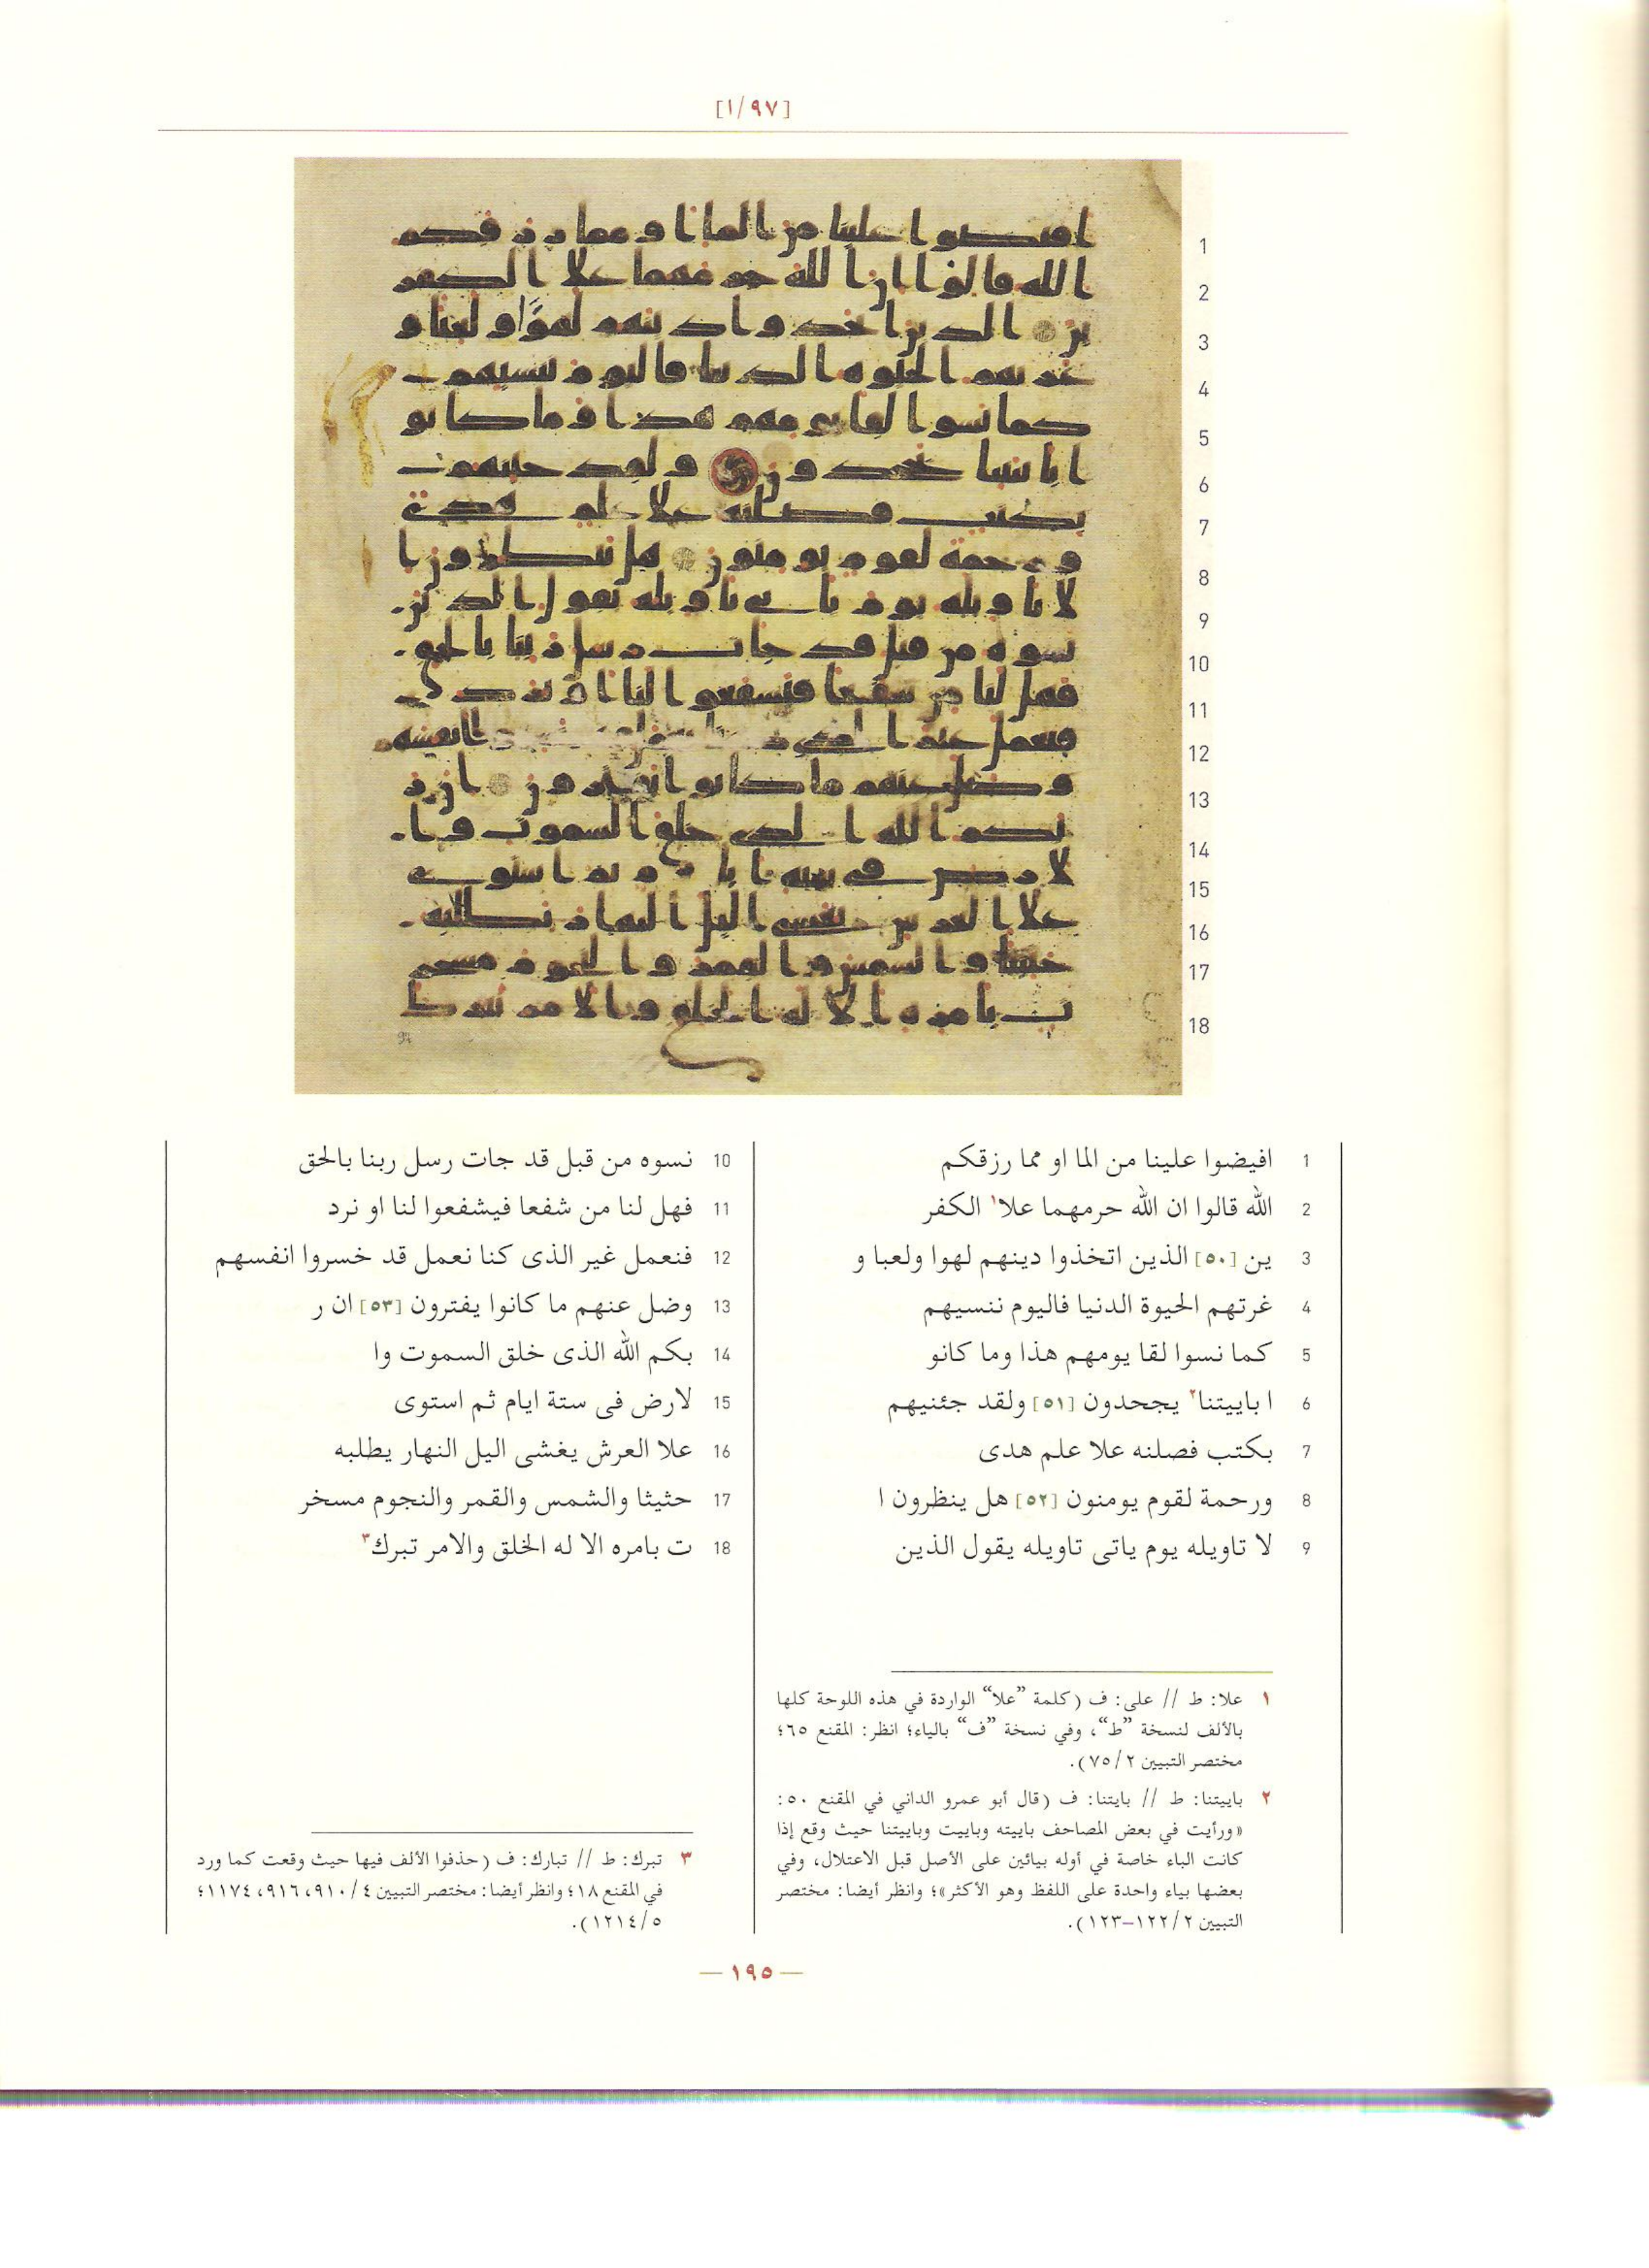 [١/٩٧]
1 افيضوا علينا من الما او مما رزقكم
2 الله قالوا ان الله حرمهما علا١ الكفر
3 ين [٥٠] الذين اتخذوا دينهم لهوا ولعبا و
4 غرتهم الحيوة الدنيا فاليوم ننسيهم
5 كما نسوا لقا يومهم هذا وما كانو
6 ا باييتنا٢ يجحدون [٥١] ولقد جئنيهم
7 بكتب فصلنه علا علم هدى
8 ورحمة لقوم يومنون [٥٢] هل ينظرون ا
9 لا تاويله يوم ياتى تاويله يقول الذين
10 نسوه من قبل قد جات رسل ربنا بالحق
11 فهل لنا من شفعا فيشفعوا لنا او نرد
12 فنعمل غير الذى كنا نعمل قد خسروا انفسهم
13 وضل عنهم ما كانوا يفترون [٥٣] ان ر
14 بكم الله الذى خلق السموت وا
15 لارض فى ستة ايام ثم استوى
16 علا العرش يغشى اليل النهار يطلبه
17 حثيثا والشمس والقمر والنجوم مسخر
18 ت بامره الا له الخلق والامر تبرك٣
١ علا: ط // على: ف (كلمة ”علا“ الواردة في هذه اللوحة كلها
بالألف لنسخة ”ط“، وفي نسخة ”ف“ بالياء؛ انظر: المقنع ٦٥؛
مختصر التبيين ٧٥/٢).
٢ باييتنا: ط // بايتنا: ف (قال أبو عمرو الداني في المقنع ٥٠:
«ورأيت في بعض المصاحف باييته وباييت وباييتنا حيث وقع إذا
كانت الباء خاصة في أوله بيائين على الأصل قبل الاعتلال، وفي
بعضها بياء واحدة على اللفظ وهو الأكثر»؛ وانظر أيضا: مختصر
التبيين ١٢٢/٢–١٢٣).
٣ تبرك: ط // تبارك: ف (حذفوا الألف فيها حيث وقعت كما ورد
في المقنع ١٨؛ وانظر أيضا: مختصر التبيين ٩١٠/٤، ٩١٦، ١١٧٤؛
١٢١٤/٥).
— ١٩٥ —